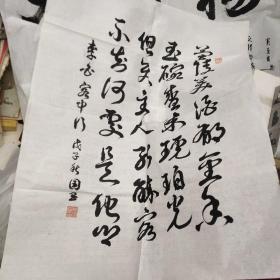 兰陵美酒郁金香
玉碗盛来琥珀光
但使主人能醉客
不知何处是他乡
李白客中行 戊子秋国